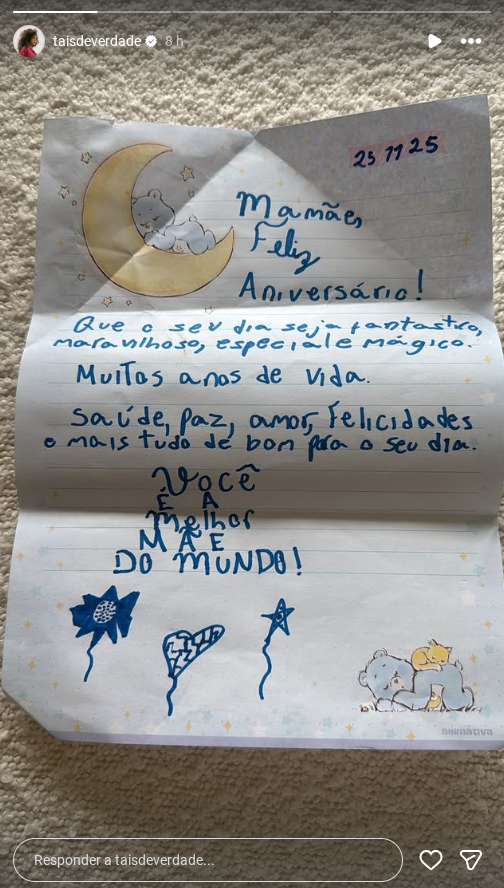 taisdeverdade 8 h
25 11 25
Mamãe,
Feliz
Aniversário!
Que o seu dia seja fantastico,
maravilhoso, especial e mágico.
Muitos anos de vida.
Saúde, paz, amor, felicidades
e mais tudo de bom para o seu dia.
Você
É A
Melhor
MÃE
DO MUNDO!
animativa
Responder a taisdeverdade...